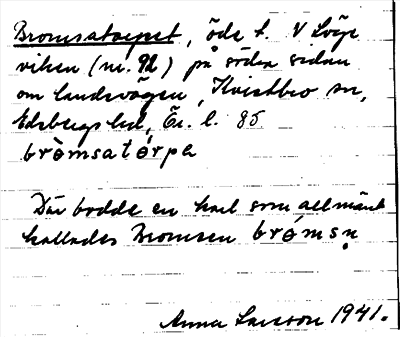 Bromsatorpet, öde t. V Löge
viken (nr. 92) på södra sidan
om landsvägen, Kvistbro sn,
Edsbergs hd, Ör. l. 85
bròmsatórpə
Där bodde en karl som allmänt
kallades Bromsen brómsṇ
Anna Larsson 1941.